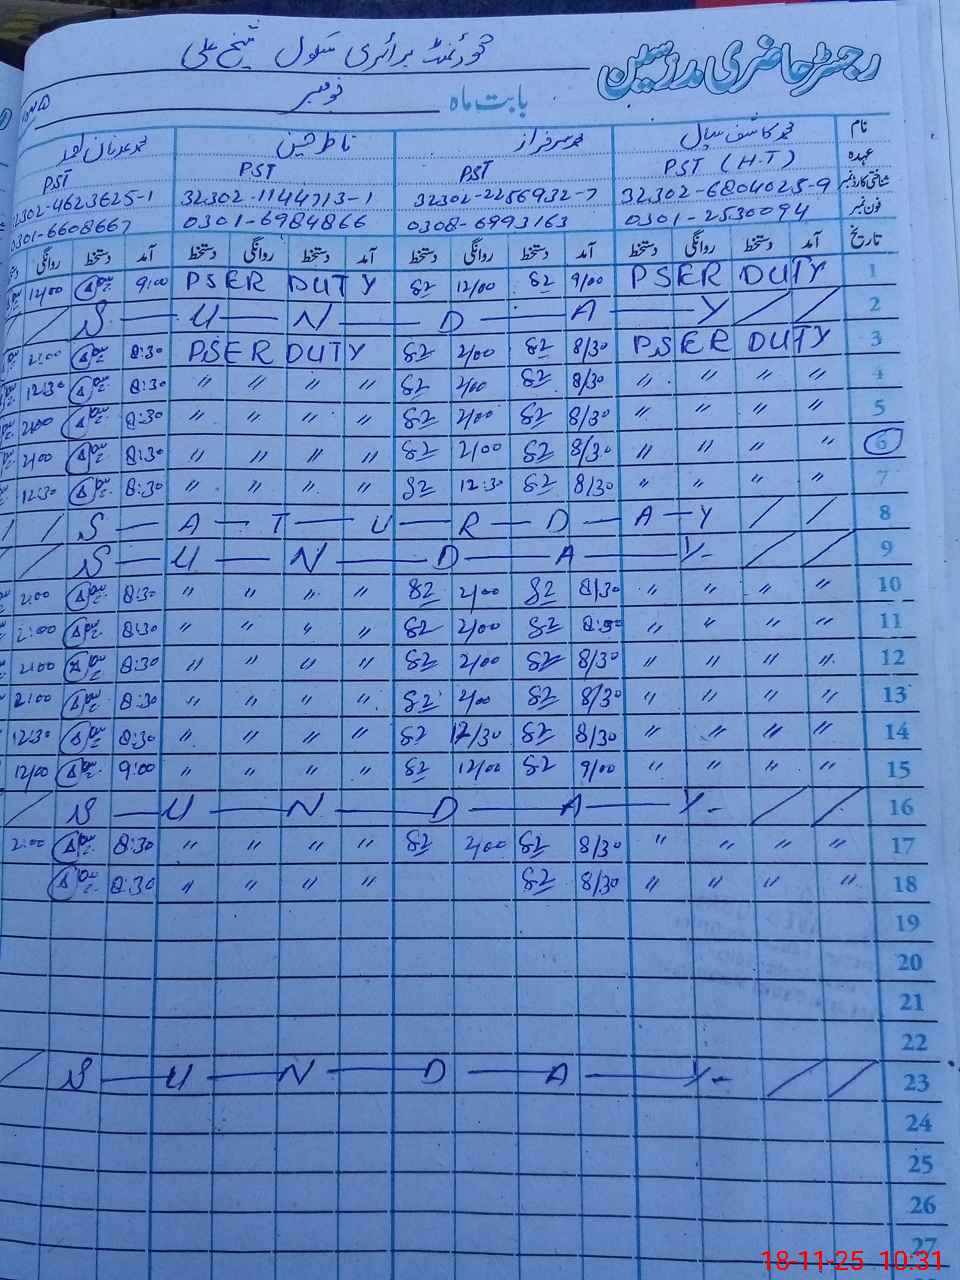 رجسٹر حاضری مدرسین
گورنمنٹ پرائمری سکول شیخ علی
بابت ماہ نومبر
نام محمد کاشف سیال محمد سرفراز ناظر حسین محمد عدنان
عہدہ PST (H.T) PST PST PST
شناختی کارڈ نمبر 32302-6804025-9 32302-2256932-7 32302-1144713-1 32302-4623625-1
فون نمبر 0301-2530094 0308-6993163 0301-6984866 0301-6608667
تاریخ آمد دستخط روانگی دستخط آمد دستخط روانگی دستخط آمد دستخط روانگی دستخط آمد دستخط روانگی
1 PSER DUTY 9/00 12/00 PSER DUTY 9:00 12/00
2 S U N D A Y
3 PSER DUTY 8/30 2/00 PSER DUTY 8:30 2:00
4 " " " " 8/30 2/00 " " " " 8:30 12:30
5 " " " " 8/30 2/00 " " " " 8:30 2:00
6 " " " " 8/30 2/00 " " " " 8:30 2:00
7 " " " " 8/30 12:30 " " " " 8:30 12:30
8 S A T U R D A Y
9 S U N D A Y
10 " " " " 8/30 2/00 " " " " 8:30 2:00
11 " " " " 8:30 2/00 " " " " 8:30 2:00
12 " " " " 8/30 2/00 " " " " 8:30 2:00
13 " " " " 8/30 2/00 " " " " 8:30 2:00
14 " " " " 8/30 12/30 " " " " 8:30 12:30
15 " " " " 9/00 12/00 " " " " 9:00 12/00
16 S U N D A Y
17 " " " " 8/30 2/00 " " " " 8:30 2:00
18 " " " " 8/30 " " " " 8:30
19
20
21
22
23 S U N D A Y
24
25
26
27
18-11-25 10:31